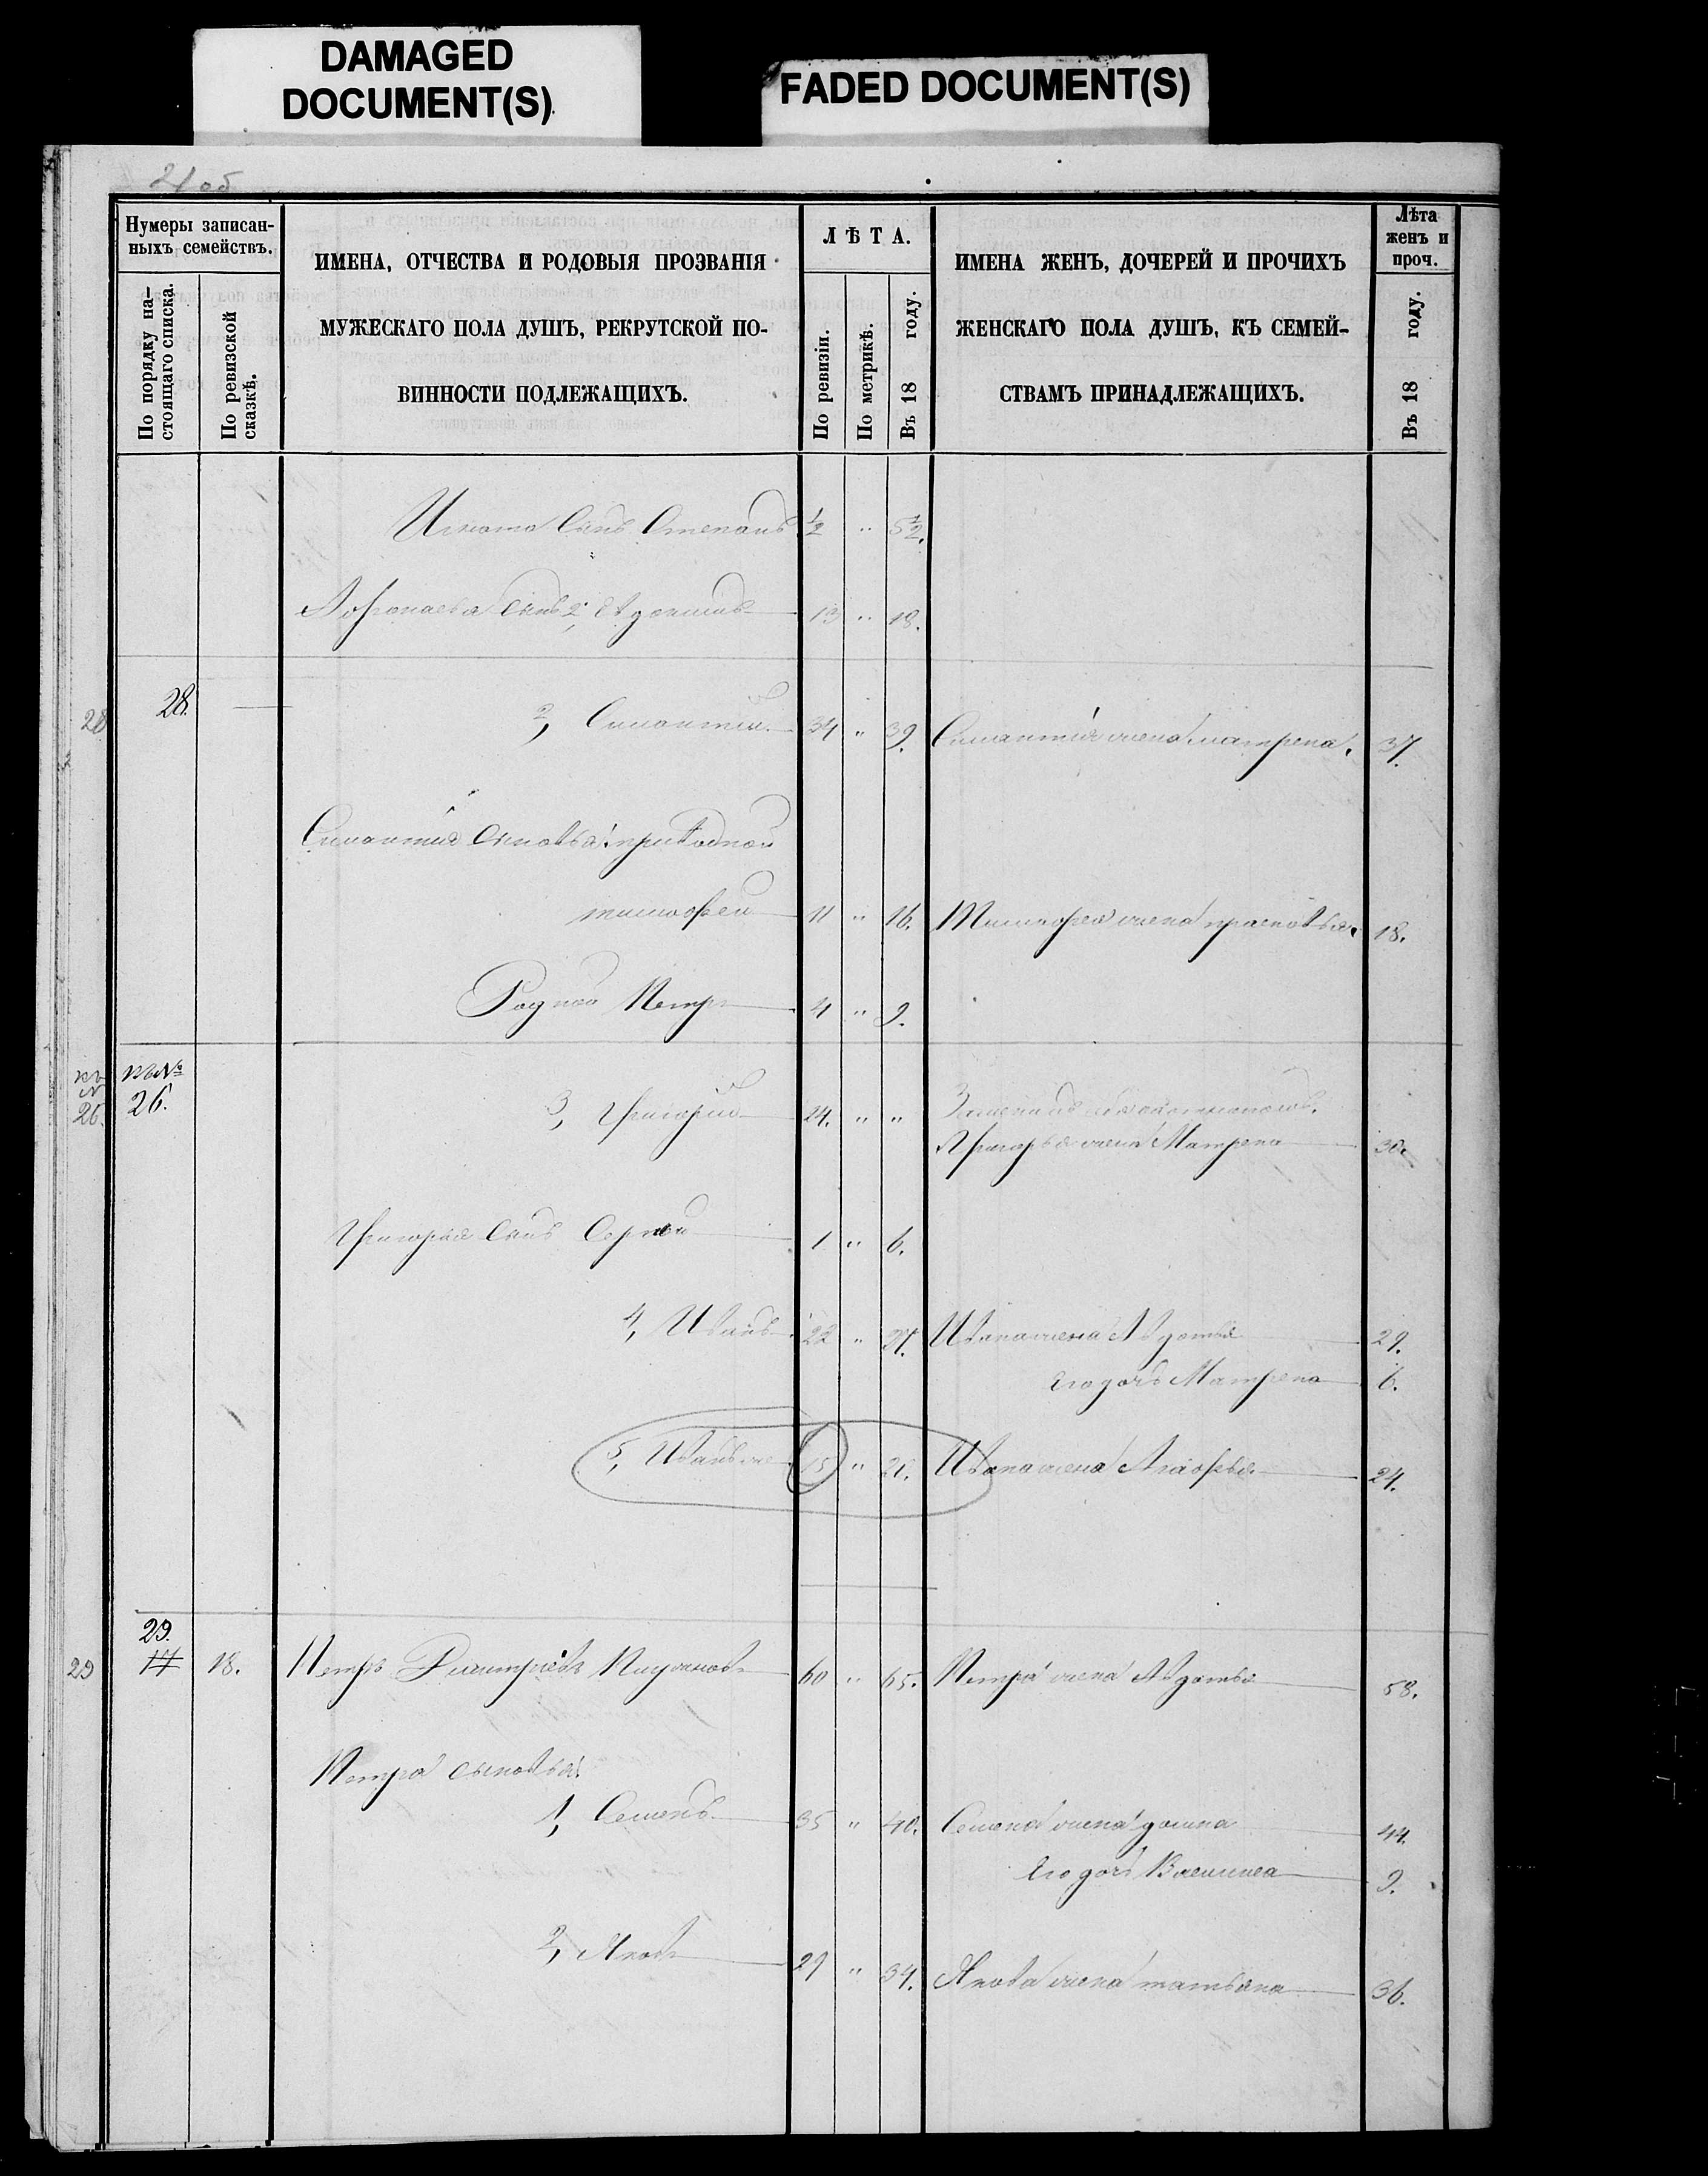 DAMAGED
DOCUMENT(S)
FADED DOCUMENT(S)
21 об
Нумеры записан-
ныхъ семействъ.
По порядку на-
стоящаго списка.
По ревизской
сказкѣ.
ИМЕНА, ОТЧЕСТВА И РОДОВЫЯ ПРОЗВАНІЯ
МУЖЕСКАГО ПОЛА ДУШЪ, РЕКРУТСКОЙ ПО-
ВИННОСТИ ПОДЛЕЖАЩИХЪ.
ЛѢТА.
По ревизіи.
По метрикѣ.
Въ 18 году.
ИМЕНА ЖЕНЪ, ДОЧЕРЕЙ И ПРОЧИХЪ
ЖЕНСКАГО ПОЛА ДУШЪ, КЪ СЕМЕЙ-
СТВАМЪ ПРИНАДЛЕЖАЩИХЪ.
Лѣта
женъ и
проч.
Въ 18 году.
Сынъ Степанъ 1/2 " 5 1/2.
Сынъ 2, Евдокимъ 13 " 18.
28 28. 2, 34 " 39. жена Матрена. 37.
Сыновья: приводной
Тимофей 11 " 16. Тимофея жена Прасковья. 18.
Родной Петръ 4 " 9.
къ № 26. къ № 26. 3, Григорій 24. " "
Григорья жена Матрена 30.
Григорья Сынъ Сергей 1 " 6.
4, Иванъ 22 " 27. Ивана жена Авдотья 29.
Его дочь Матрена 6.
5, Иванъ же 15 " 20. Ивана жена Агафья 24.
29 29. 17 18. Петръ Димитріевъ 60 " 65. Петра жена Авдотья 58.
Петра сыновья:
1, Семенъ 35 " 40. Семена жена Домна 44.
Его дочь 9.
2, Яковъ 29 " 34. Якова жена Татьяна 36.